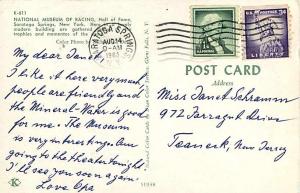 K-611
NATIONAL MUSEUM OF RACING, Hall of Fame,
Saratoga Springs, New York.
modern building are gathered
trophies and mementos of the
Color Photo
SARATOGA SPRINGS
AUG 14
-AM
My dear Janet
I like it here very much
people are friendly and
the Mineral-Water is good
for me. The Museum
is very interesting. Am
going to the theater tonight
I'll see you soon again.
Love Opa
POST CARD
Address
Miss Janet Schramm
972 Farragut Drive
Teaneck, New Jersey
U.S. POSTAGE 3¢
LIBERTY
1¢
K